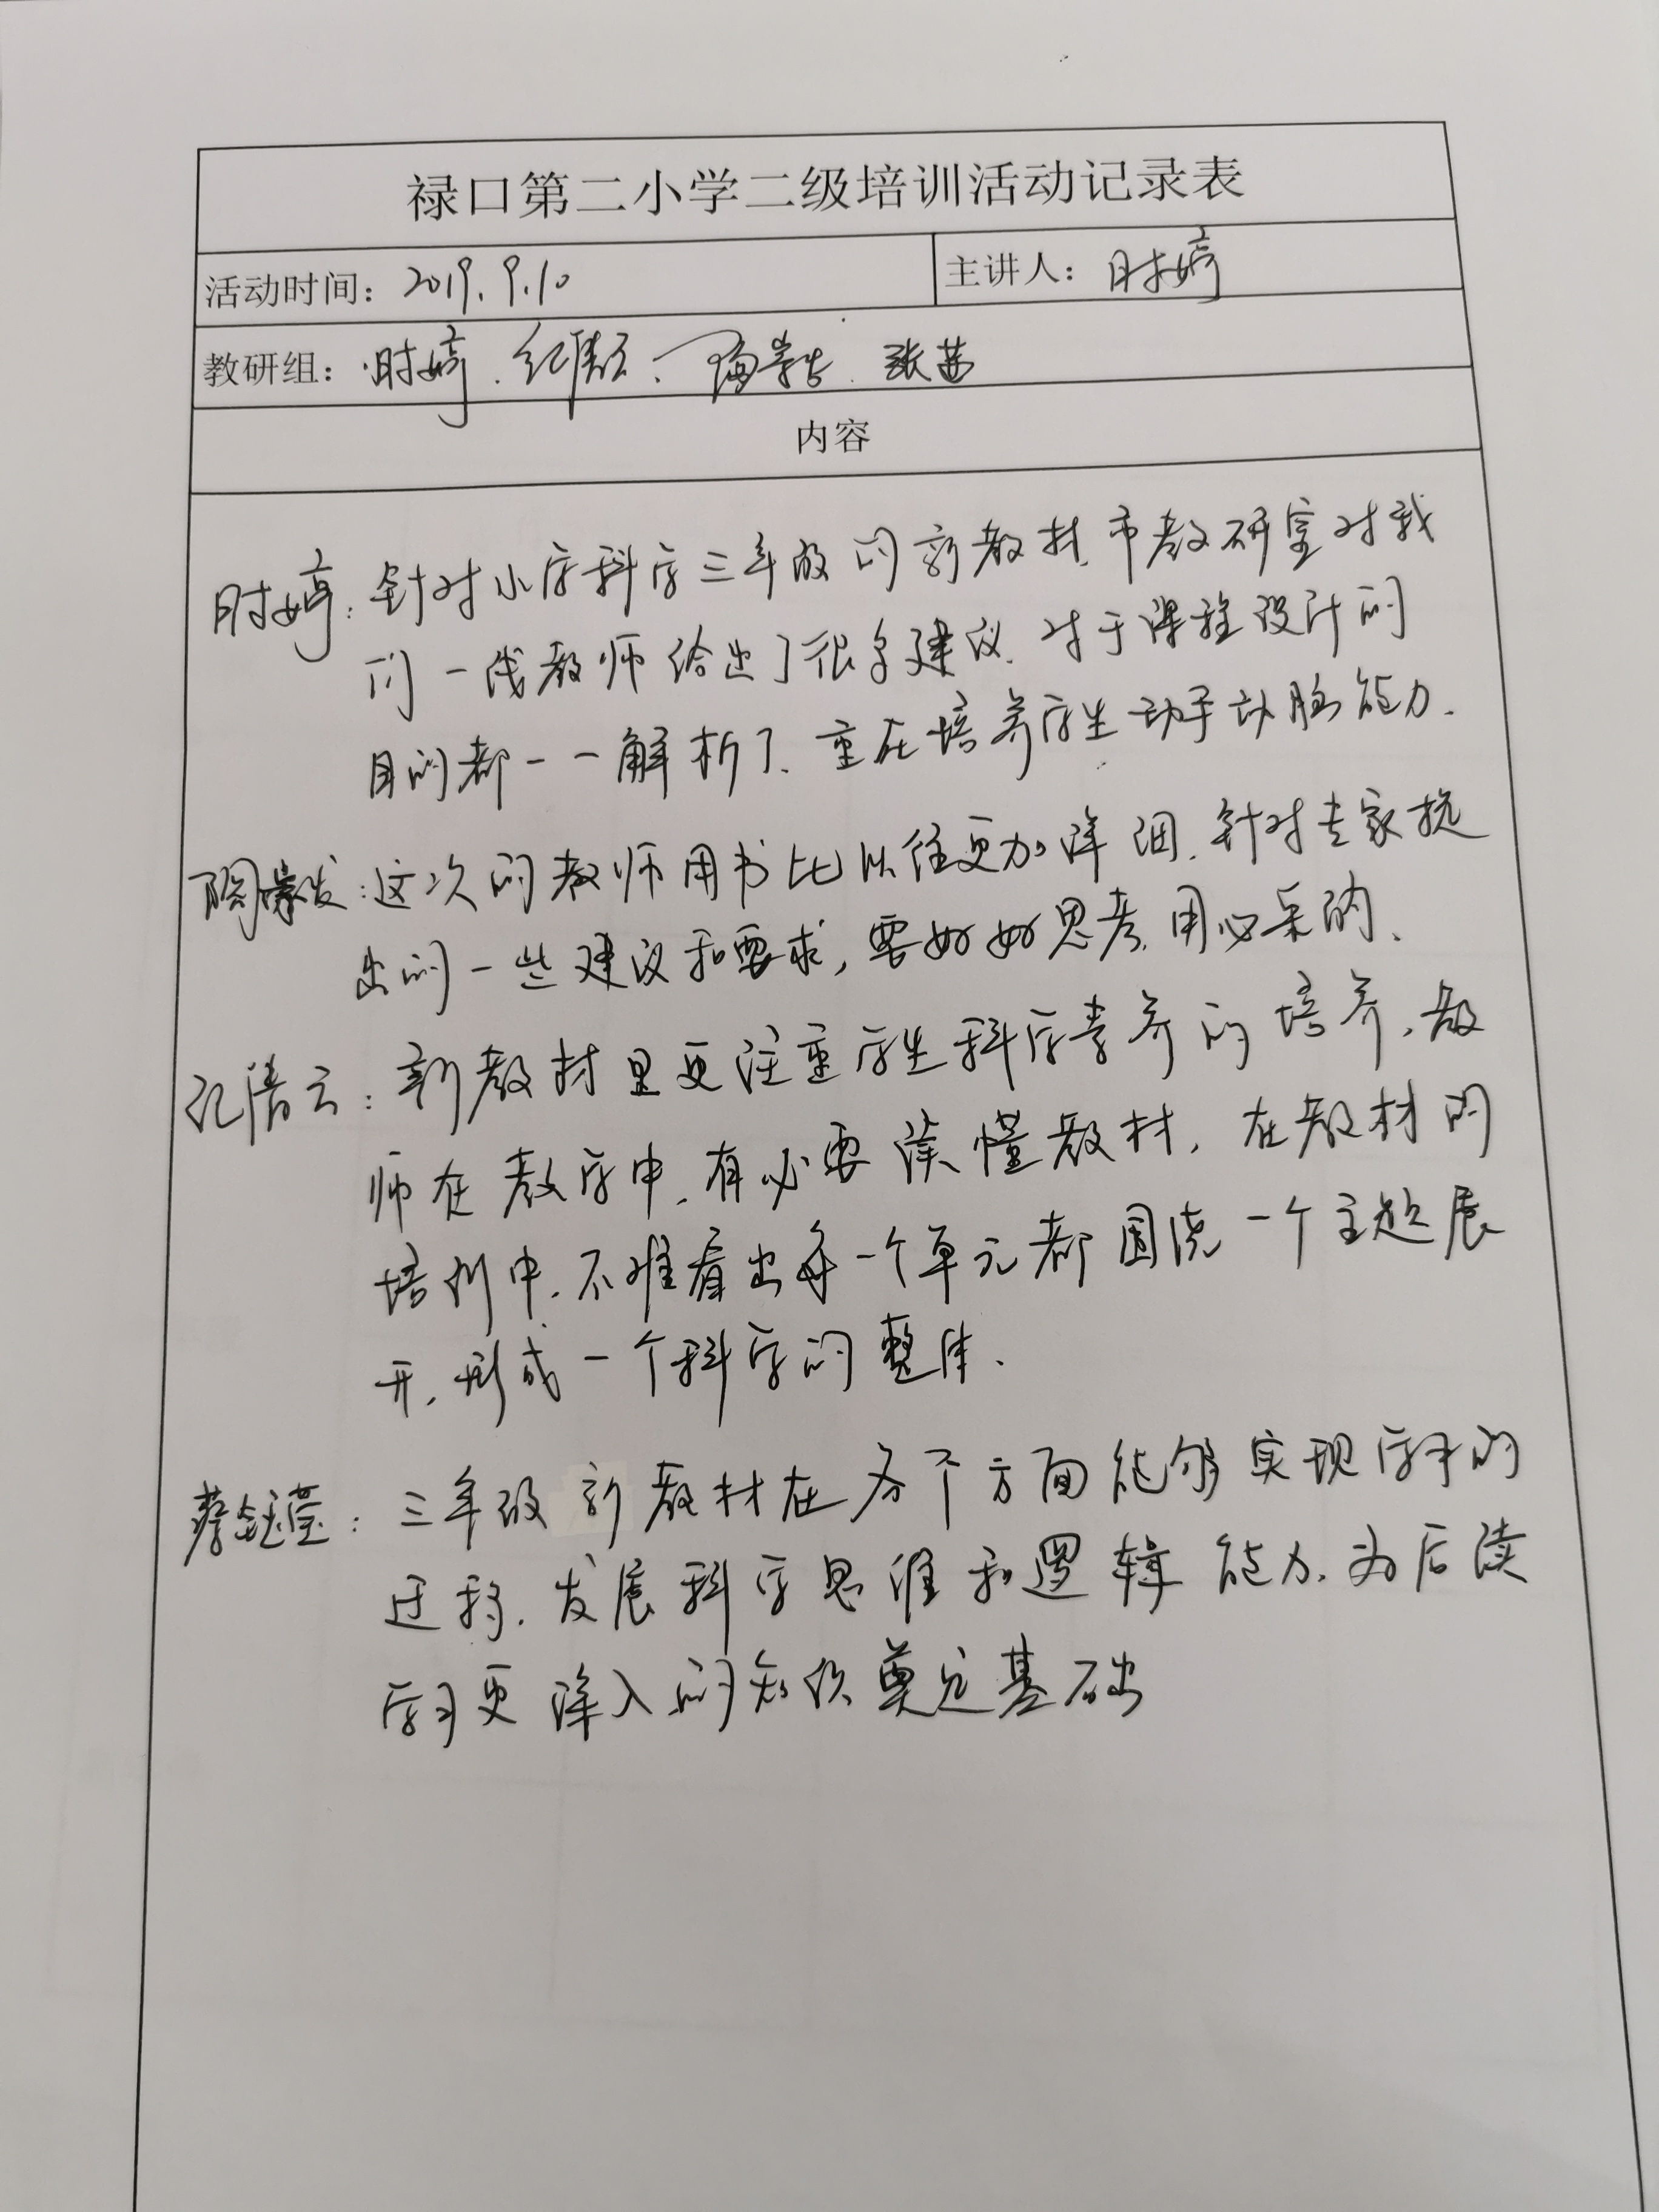 禄口第二小学二级培训活动记录表
活动时间：2019.9.10
主讲人：时婷
教研组：时婷、张茜
内容
时婷：针对小学科学三年级的新教材，市教研室对我
们一线教师给出了很多建议，对于课程设计的
目的都一一解析了，重在培养学生动手动脑能力.
陶：这次的教师用书比以往更加详细，针对专家提
出的一些建议和要求，要好好思考，用心采纳、
孔倩云：新教材里更注重学生科学素养的培养，教
师在教学中，有必要读懂教材，在教材的
培训中，不难看出每一个单元都围绕一个主题展
开，形成一个科学的整体、
蔡钰莹：三年级新教材在各个方面能够实现学科的
迁移，发展科学思维和逻辑能力，为后续
学习更深入的知识奠定基础